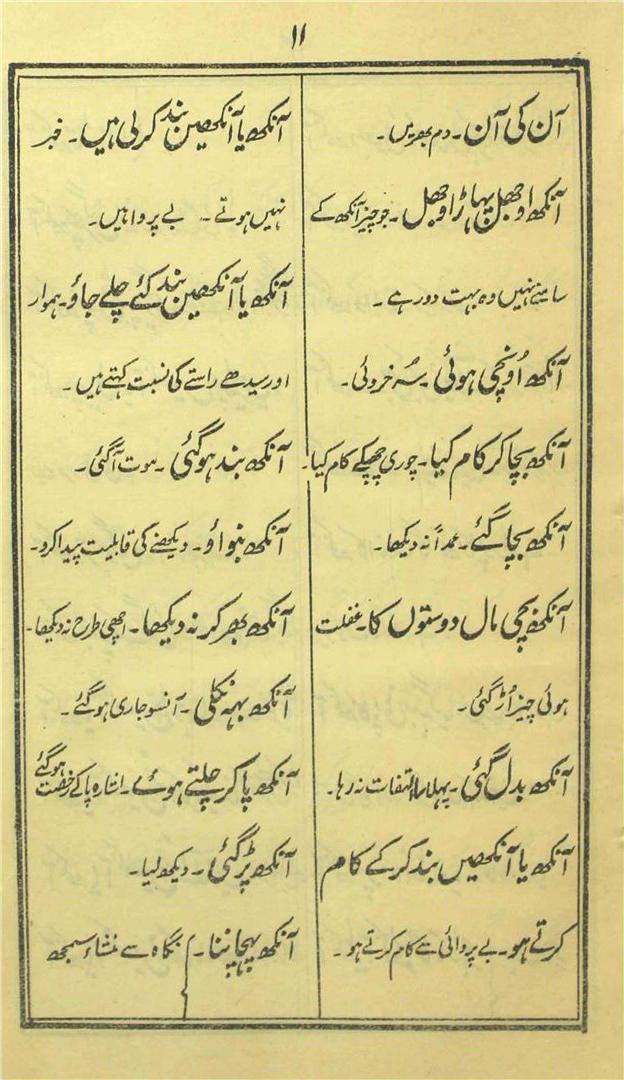 ۱۱
آن کی آن۔ دم بھر میں۔
آنکھ اوجھل پہاڑ اوجھل۔ جو چیز آنکھ کے
سامنے نہیں وہ بہت دور ہے۔
آنکھ اُونچی ہوئی۔ سُرخروئی۔
آنکھ بچا کر کام کیا۔ چوری چھپکے کام کیا۔
آنکھ بچا گئے۔ عمداً نہ دیکھا۔
آنکھ بچی مال دوستوں کا۔ غفلت
ہوئی چیز اُڑ گئی۔
آنکھ بدل گئی۔ پہلا سا التفات نہ رہا۔
آنکھ یا آنکھیں بند کر کے کام
کرتے ہو۔ بے پروائی سے کام کرتے ہو۔
آنکھ یا آنکھین بند کر لی ہیں۔ خبر
نہیں ہوتے۔ بے پروا ہیں۔
آنکھ یا آنکھین بند کئے چلے جاؤ۔ ہموار
اور سیدھے راستے کی نسبت کہتے ہیں۔
آنکھ بند ہو گئی۔ موت آ گئی۔
آنکھ بنواؤ۔ دیکھنے کی قابلیت پیدا کرو۔
آنکھ بھر کر نہ دیکھا۔ اچھی طرح نہ دیکھا۔
آنکھ بہہ نکلی۔ آنسو جاری ہو گئے۔
آنکھ پا کر چلتے ہوئے۔ اشارہ پا کے رخصت ہو گئے
آنکھ پڑ گئی۔ دیکھ لیا۔
آنکھ پہچاننا۔ نگاہ سے منشاء سمجھ